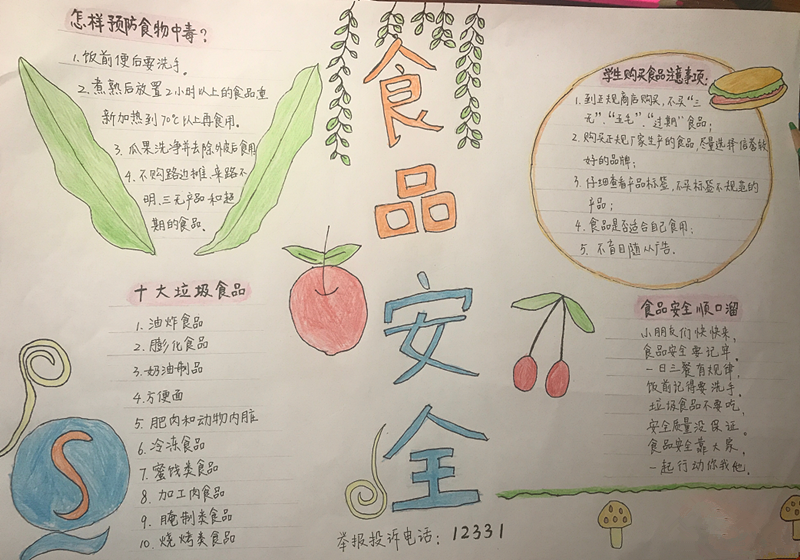 怎样预防食物中毒？
1.饭前便后要洗手。
2.煮熟后放置2小时以上的食品重
新加热到70℃以上再食用。
3.瓜果洗净并去除外皮后食用
4.不购路边摊、来路不
明、三无产品和超
期的食品。
食品安全
学生购买食品注意事项：
1.到正规商店购买，不买“三
无”“五毛”“过期”食品；
2.购买正规厂家生产的食品，尽量选择信誉较
好的品牌；
3.仔细查看产品标签，不买标签不规范的
产品；
4.食品是否适合自己食用；
5.不盲目随从广告．
十大垃圾食品
1.油炸食品
2.膨化食品
3.奶油制品
4.方便面
5.肥肉和动物内脏
6.冷冻食品
7.蜜饯类食品
8.加工肉食品
9.腌制类食品
10.烧烤类食品
食品安全顺口溜
小朋友们快快来，
食品安全要记牢。
一日三餐有规律，
饭前记得要洗手。
垃圾食品不要吃，
安全质量没保证。
食品安全靠大家，
一起行动你我他。
举报投诉电话：12331
S